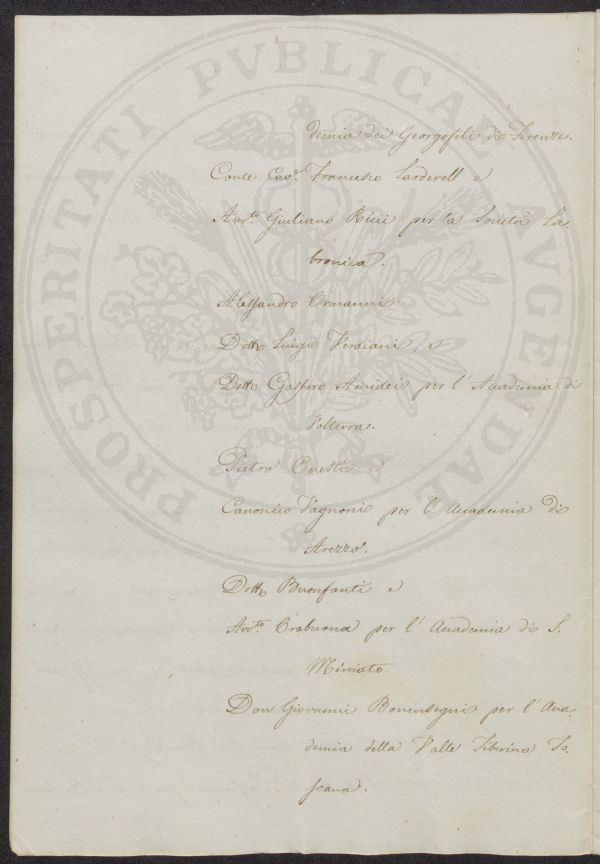 PROSPERITATI PVBLICAE AVGENDAE
demia dei Georgofili di Firenze.
Conte Cav.r Francesco Larderell e
Avv.to Giuliano Ricci per la Società La
bronica.
Alessandro Ormanni
Dott. Luigi Verdiani, e
Dott. Gaspero Amidei per l'Accademia di
Volterra.
Pietro Onesti e
Canonico Pagnoni per l'Accademia di
Arezzo.
Dott. Buonfanti e
Avv.to per l'Accademia di S.
Miniato.
Don Giovanni Boninsegni per l'Acca-
demia della Valle Tiberina To-
scana.